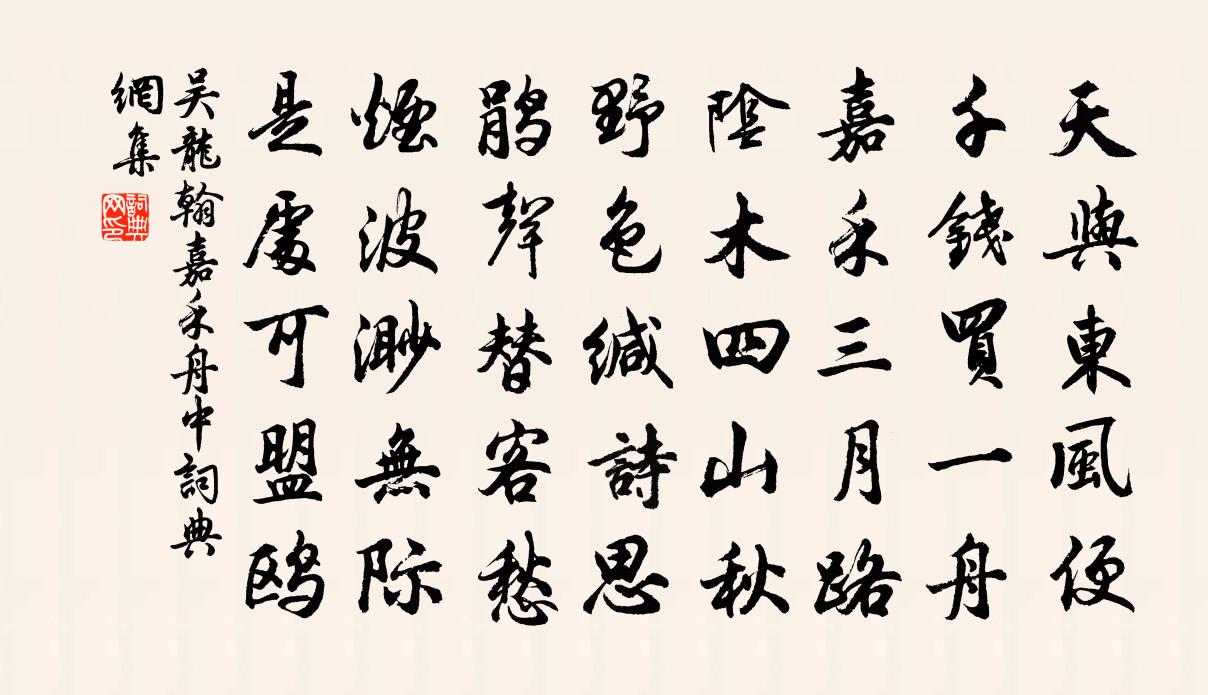 天與東風便
千錢買一舟
嘉禾三月路
陰木四山秋
野色缄詩思
鹃聲替客愁
煙波渺無际
是處可盟鸥
吴龍翰嘉禾舟中詞典
網集
詞典网印